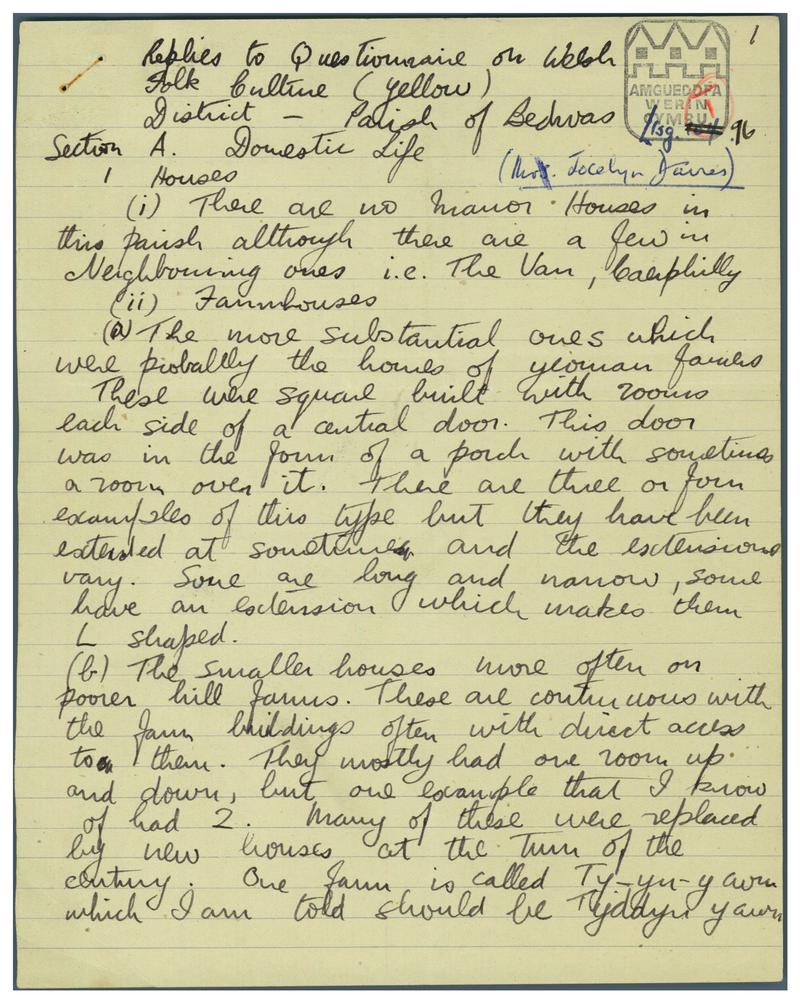 1
Replies to Questionnaire on Welsh
Folk Culture (Yellow)
AMGUEDDFA
WERIN
CYMRU
District – Parish of Bedwas
Llsg. 96
Section A. Domestic Life
(Mrs. Jocelyn Davies)
1 Houses
(i) There are no Manor Houses in
this parish although there are a few in
Neighbouring ones i.e. The Van, Caerphilly
(ii) Farmhouses
(a) The more substantial ones which
were probably the homes of yeoman famers
These were square built with rooms
each side of a central door. This door
was in the form of a porch with sometimes
a room over it. There are three or four
examples of this type but they have been
extended at sometime and the extensions
vary. Some are long and narrow, some
have an extension which makes them
L shaped.
(b) The smaller houses more often on
poorer hill farms. These are continuous with
the farm buildings often with direct access
to them. They mostly had one room up
and down, but one example that I know
of had 2. Many of these were replaced
by new houses at the turn of the
century. One farm is called Ty-yn-y awn
which I am told should be Tyddyn y awn